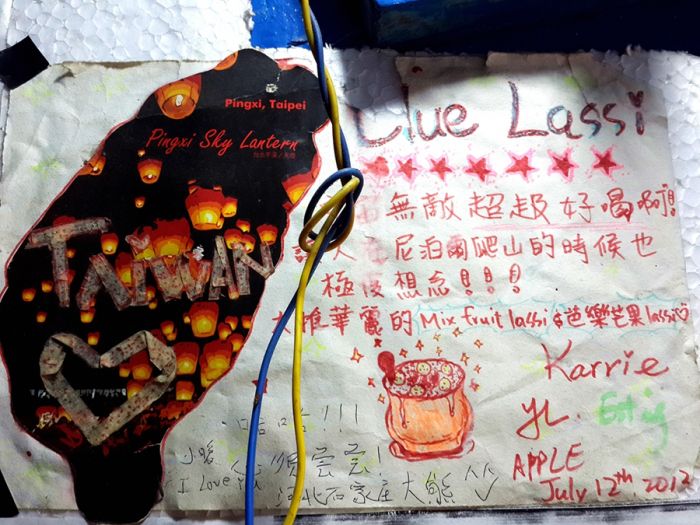 Pingxi, Taipei
Pingxi Sky Lantern
TAIWAN
Clue Lassi
無敵超級好喝啊!!
人在尼泊爾爬山的時候也
極度想念!!!
大推華麗的Mix fruit lassi & 芭樂芒果lassi
Karrie
YL.
APPLE
July 12th, 2012
哈哈!!!
I Love
河北石家庄大熊